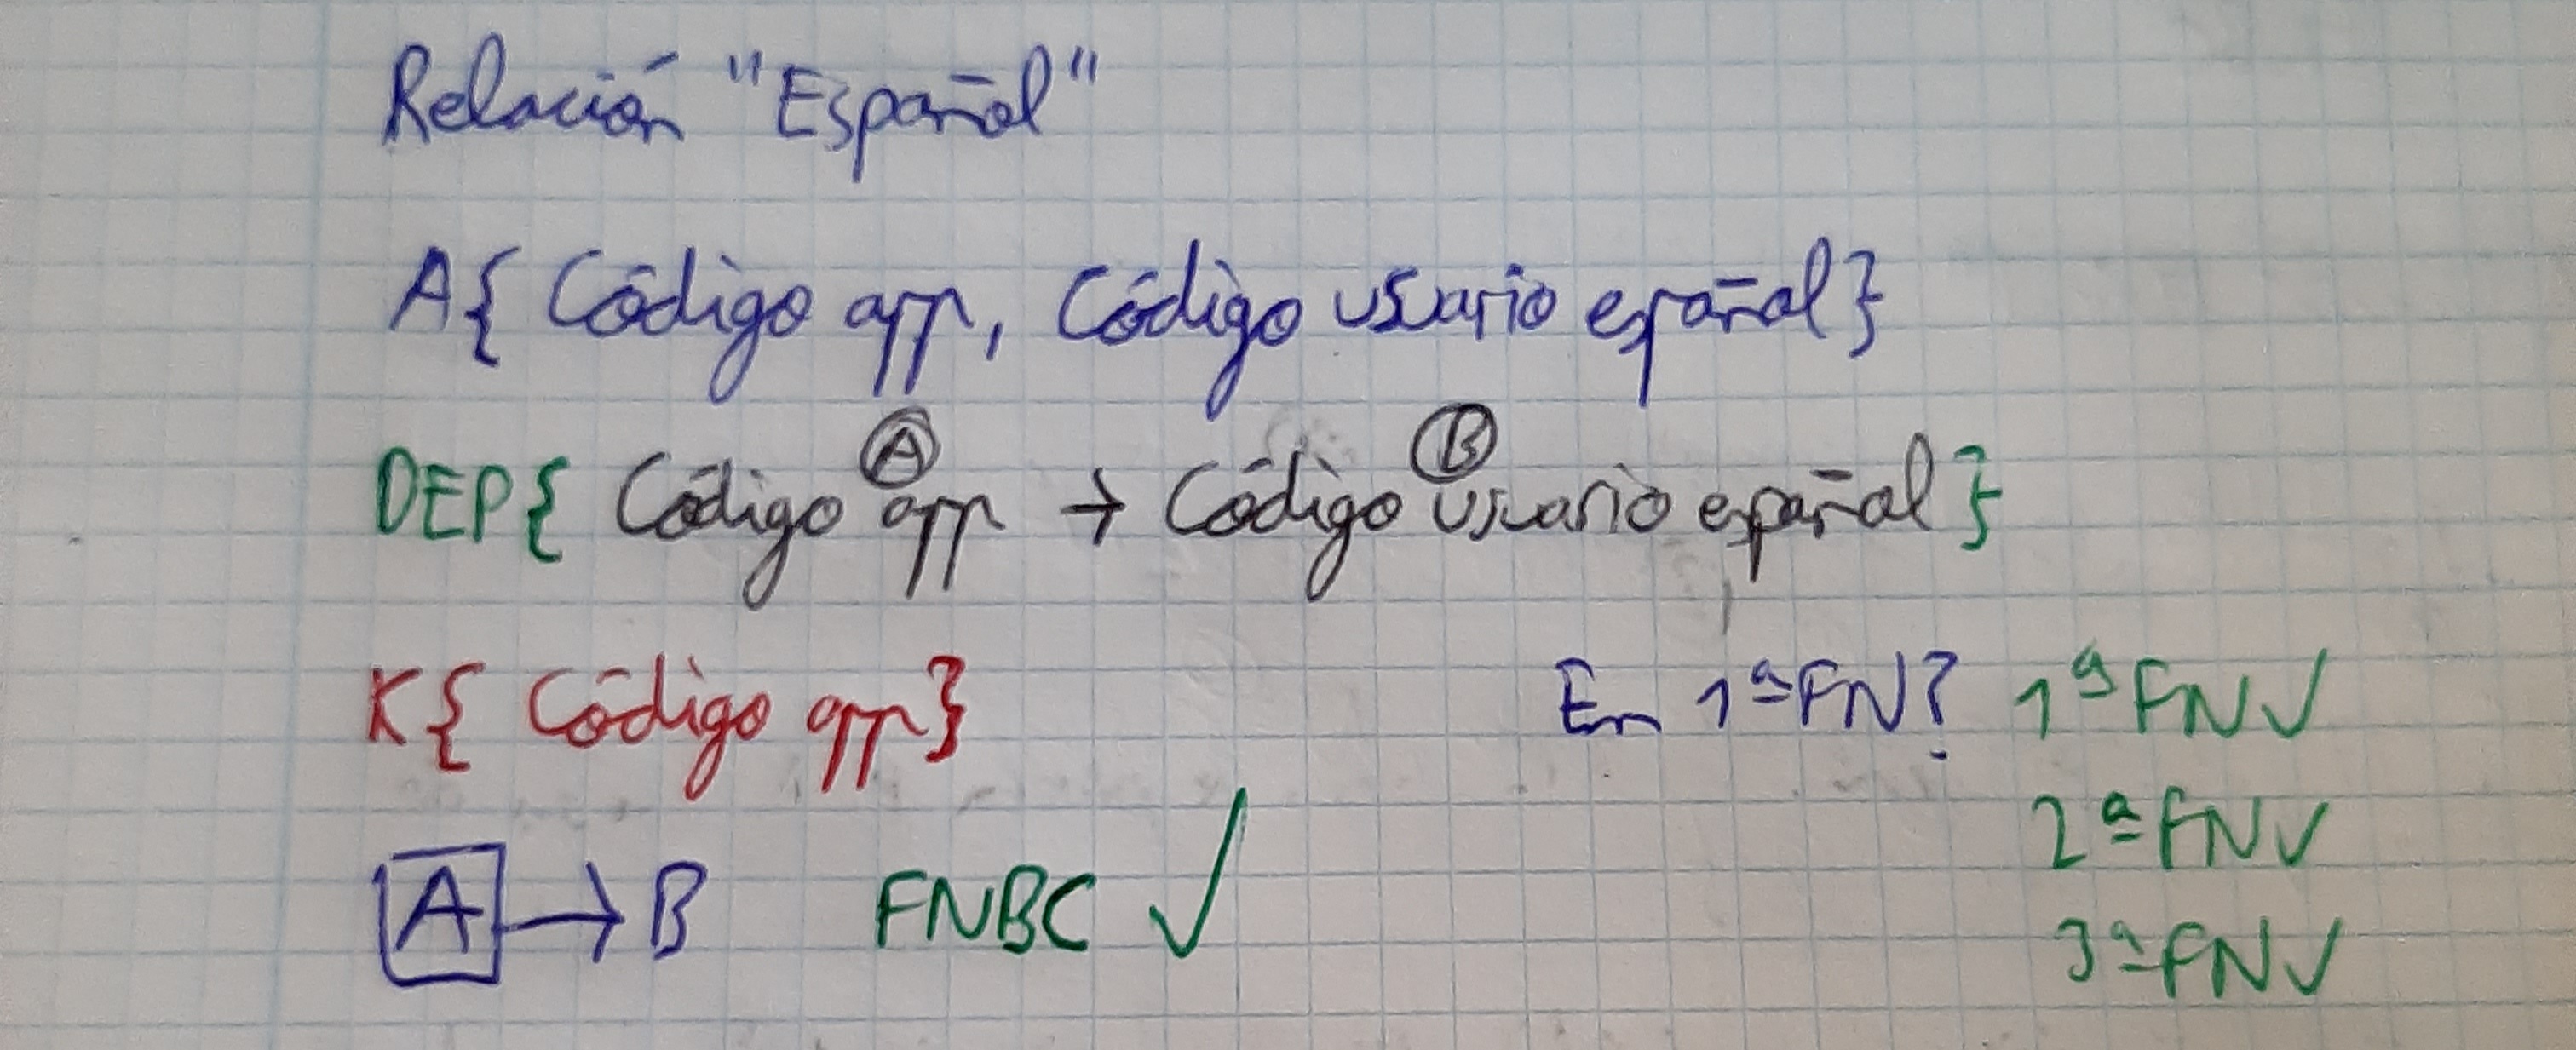 Relación "Español"
A{ Código app, Código usuario español}
A B
DEP{ Código app → Código usuario español}
K{ Código app} En 1ªFN? 1ªFN✓
2ªFN✓
A → B FNBC ✓
3ªFN✓